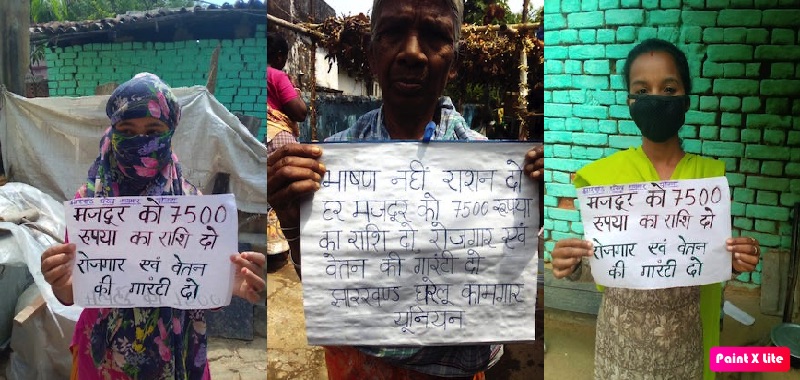 मजदूर को 7500
रुपया का राशि दो
रोजगार एवं वेतन
की गारंटी दो
भाषण नहीं राशन दो
हर मजदूर को 7500 रूपया
का राशि दो, रोजगार एवं
वेतन की गारंटी दो
झारखण्ड घरेलू कामगार
यूनियन
मजदूर को 7500
रुपया का राशि दो
रोजगार एवं वेतन
की गारंटी दो
Paint X lite